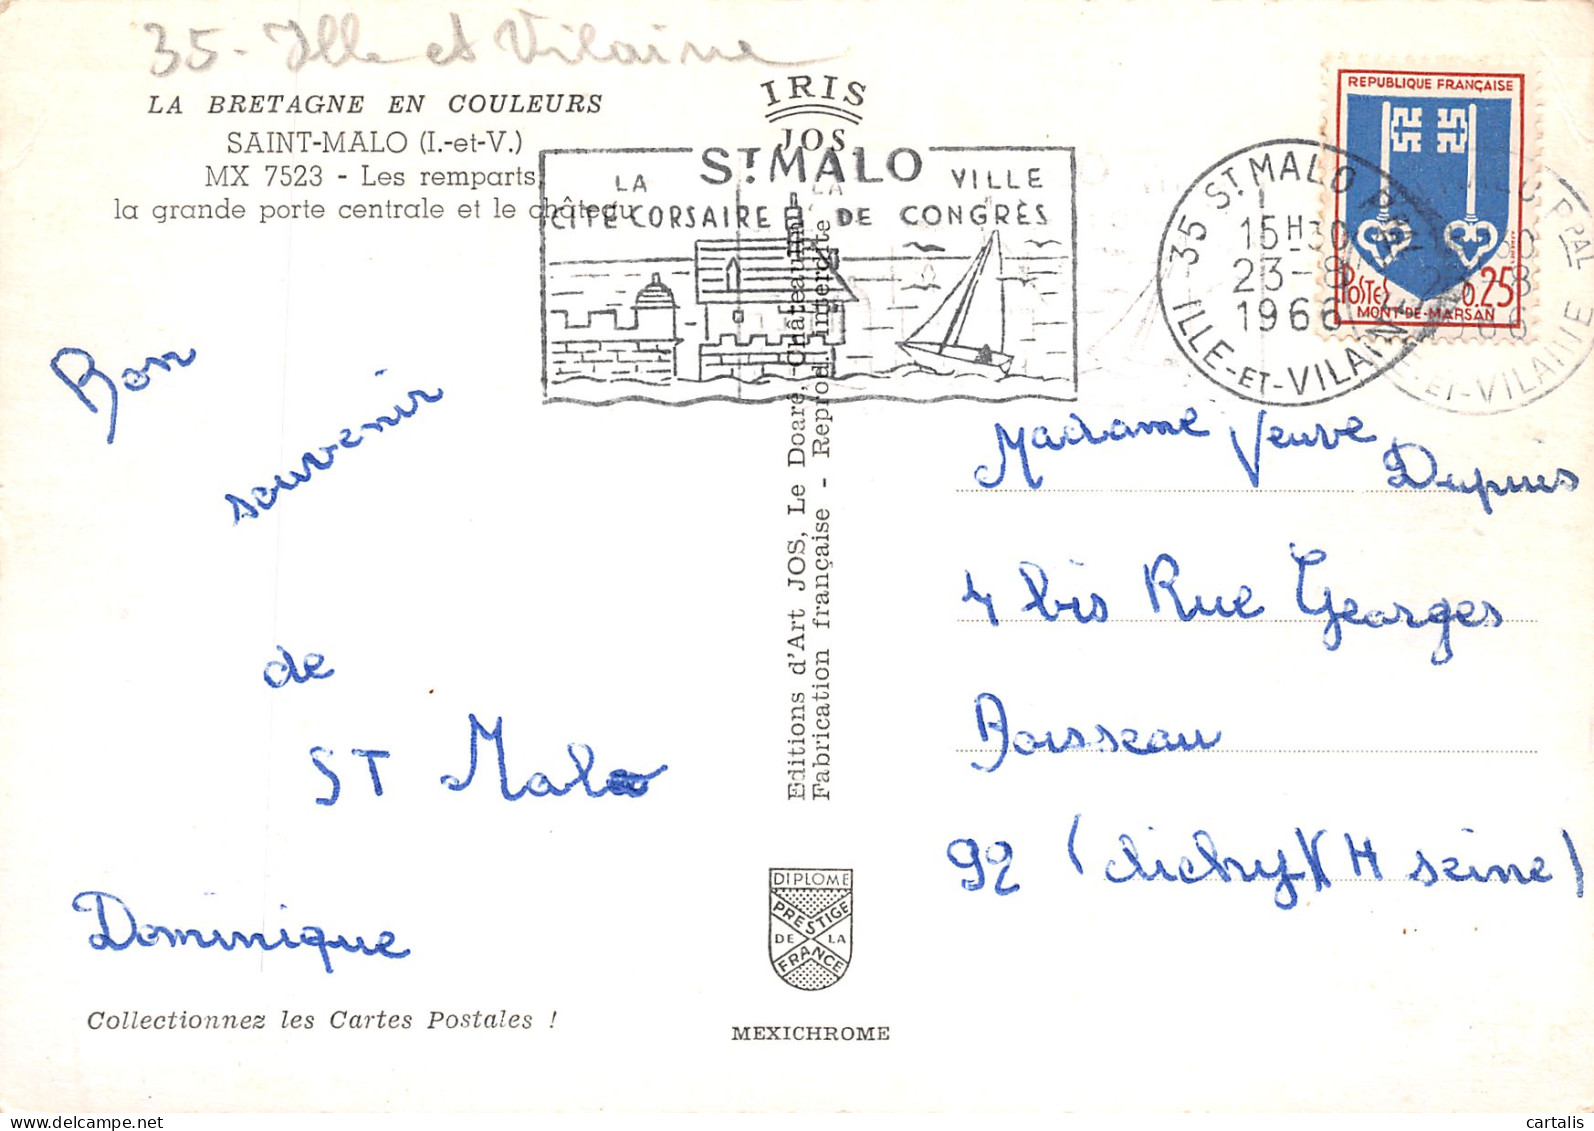 35 - Ille et Vilaine
LA BRETAGNE EN COULEURS
SAINT-MALO (I.-et-V.)
MX 7523 - Les remparts,
la grande porte centrale et le château
IRIS
JOS
ST MALO
LA VILLE
CITÉ CORSAIRE DE CONGRÈS
35 ST MALO PPAL
15H30
23-8
1966
ILLE-ET-VILAINE
REPUBLIQUE FRANÇAISE
POSTES 0.25
MONT-DE-MARSAN
Bon
souvenir
de
ST Malo
Dominique
Collectionnez les Cartes Postales !
Editions d'Art JOS, Le Doaré, Châteaulin
Fabrication française - Reprod. interdite
DIPLOME
PRESTIGE
DE LA
FRANCE
MEXICHROME
Madame Veuve
Dupuis
4 bis Rue Georges
Boisseau
92 (clichy) (H seine)
cartalis
www.delcampe.net